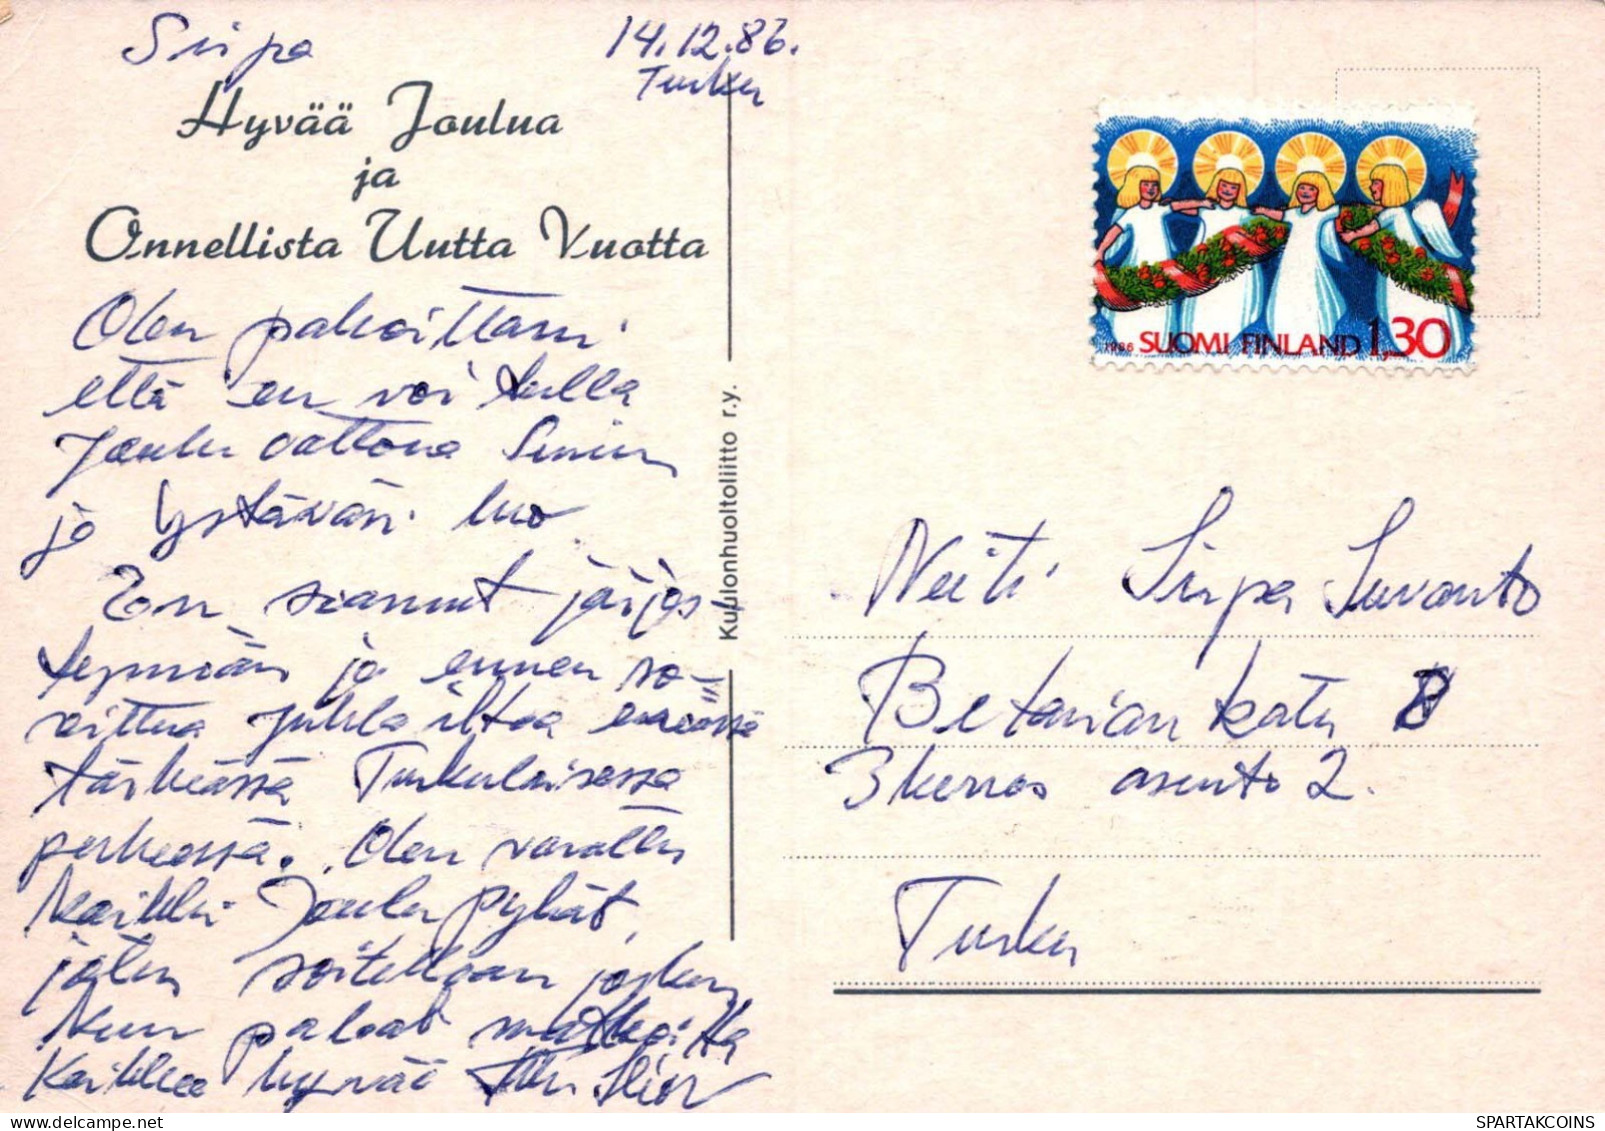 Sirpa
14.12.86.
Turku
Hyvää Joulua
ja
Onnellista Uutta Vuotta
Olen pahoittani
että en voi tulla
Joulu aattona Sinun
ja Ystäväsi luo.
Eon saanut järjes-
tymään ja ennen so-
vittua juhla iltaa eräässä
tärkeässä Turkulaisessa
perheessä. Olen varattu
Kaikki Joulu pyhät,
joten soitellaan joskus
Kun palaat matkoilta
Kaikkea hyvää
Kuulonhuoltoliitto r.y.
1986 SUOMI FINLAND 1,30
Neiti Sirpa Suvanto
Betanian katu 8
3 kerros asunto 2.
Turku
SPARTAKCOINS